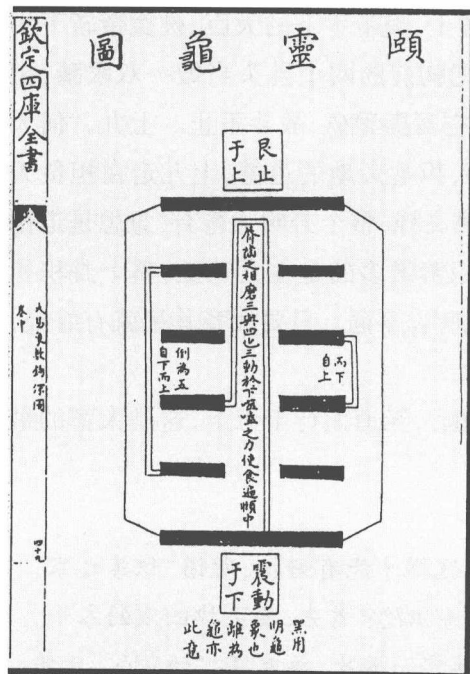 頤靈龜圖
欽定四庫全書
大易象數鉤深圖
卷中
四十九
艮止
于上
脩仙之相磨三與四也三動於下
之方使食遍頰中
而下
自上
倒為五
自下而上
震動
于下
黑用
明龜
象也
離為
龜亦
此意